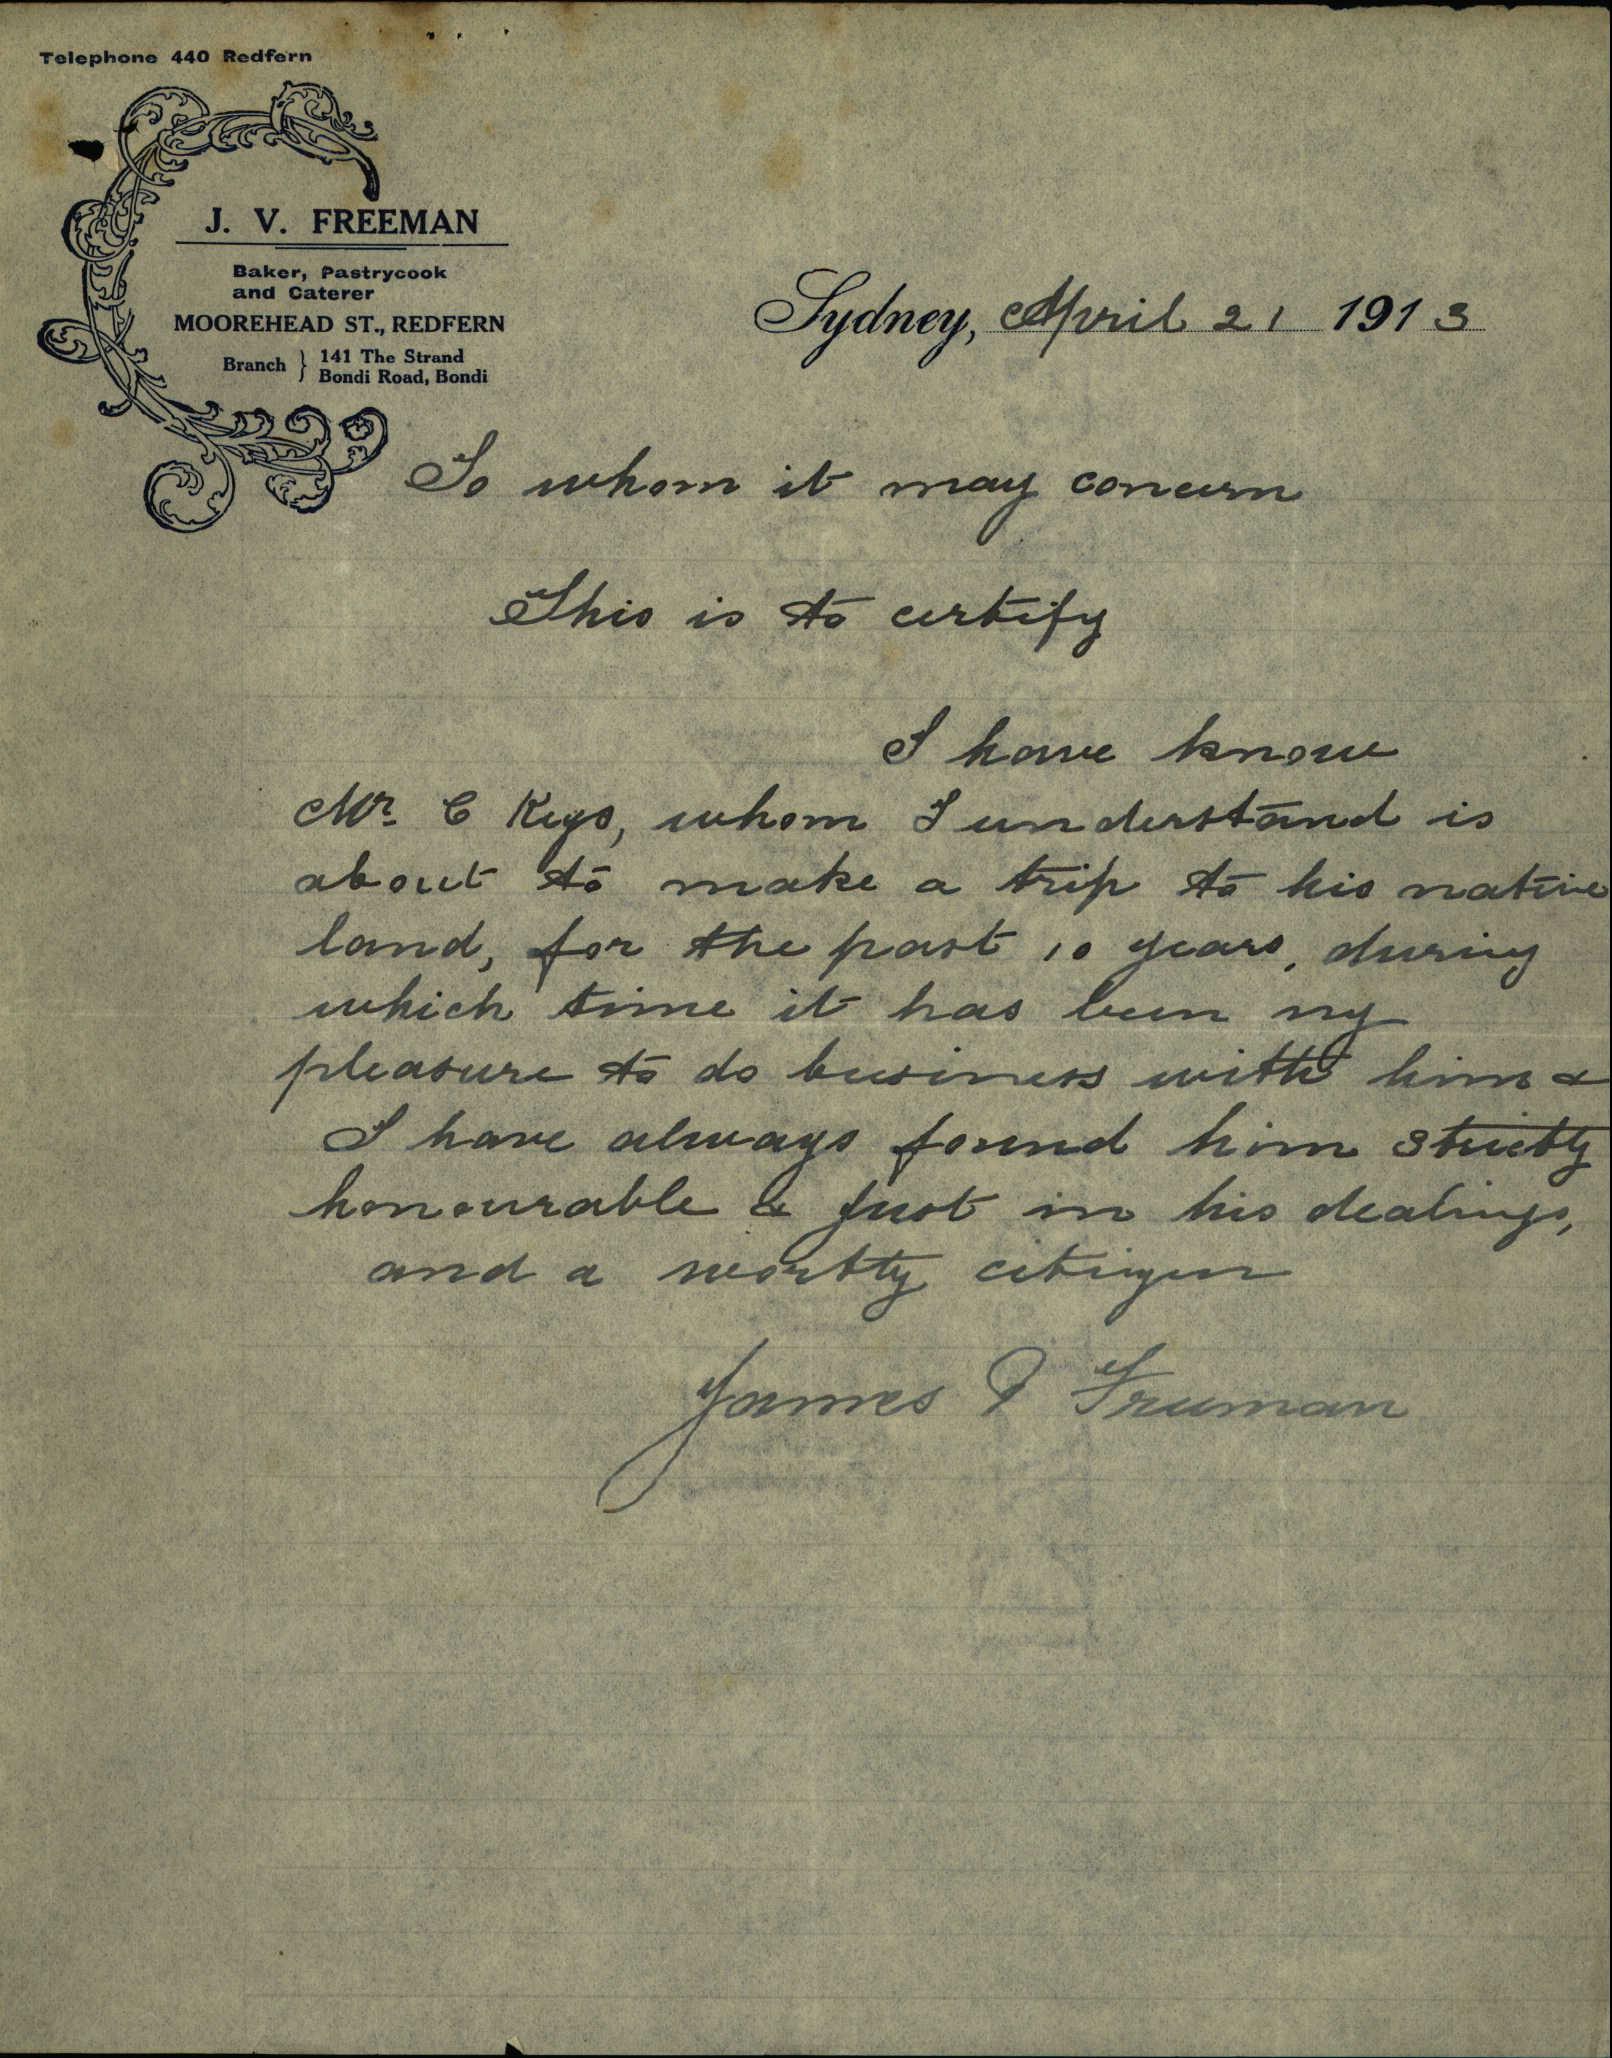 Telephone 440 Redfern
J. V. FREEMAN
Baker, Pastrycook
and Caterer
MOOREHEAD ST., REDFERN
Branch } 141 The Strand
Bondi Road, Bondi
Sydney, April 21 1913
To whom it may concern
This is to certify
I have know
Mr. C Keys, whom I understand is
about to make a trip to his native
land, for the past 10 years, during
which time it has been my
pleasure to do business with him &
I have always found him strictly
honourable & just in his dealings,
and a worthy citizen
James V Freeman